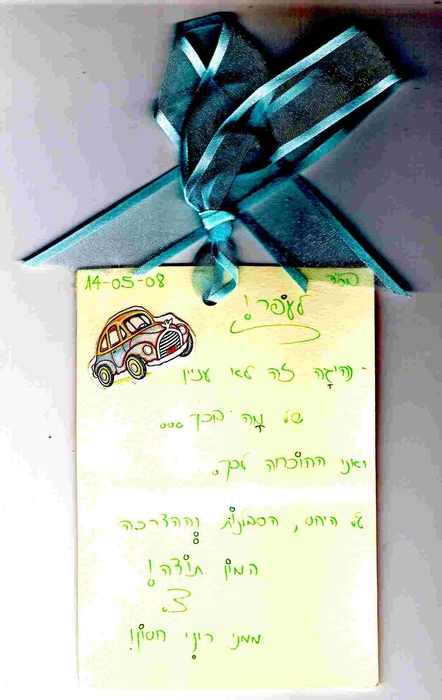 14-05-08
לעפר!
נהיגה זה לא עניין
של מה בכך...
ואני ההוכחה לכך.
על היחס, הסבלנות וההדרכה
המון תודה!
ממני רוני חסון!